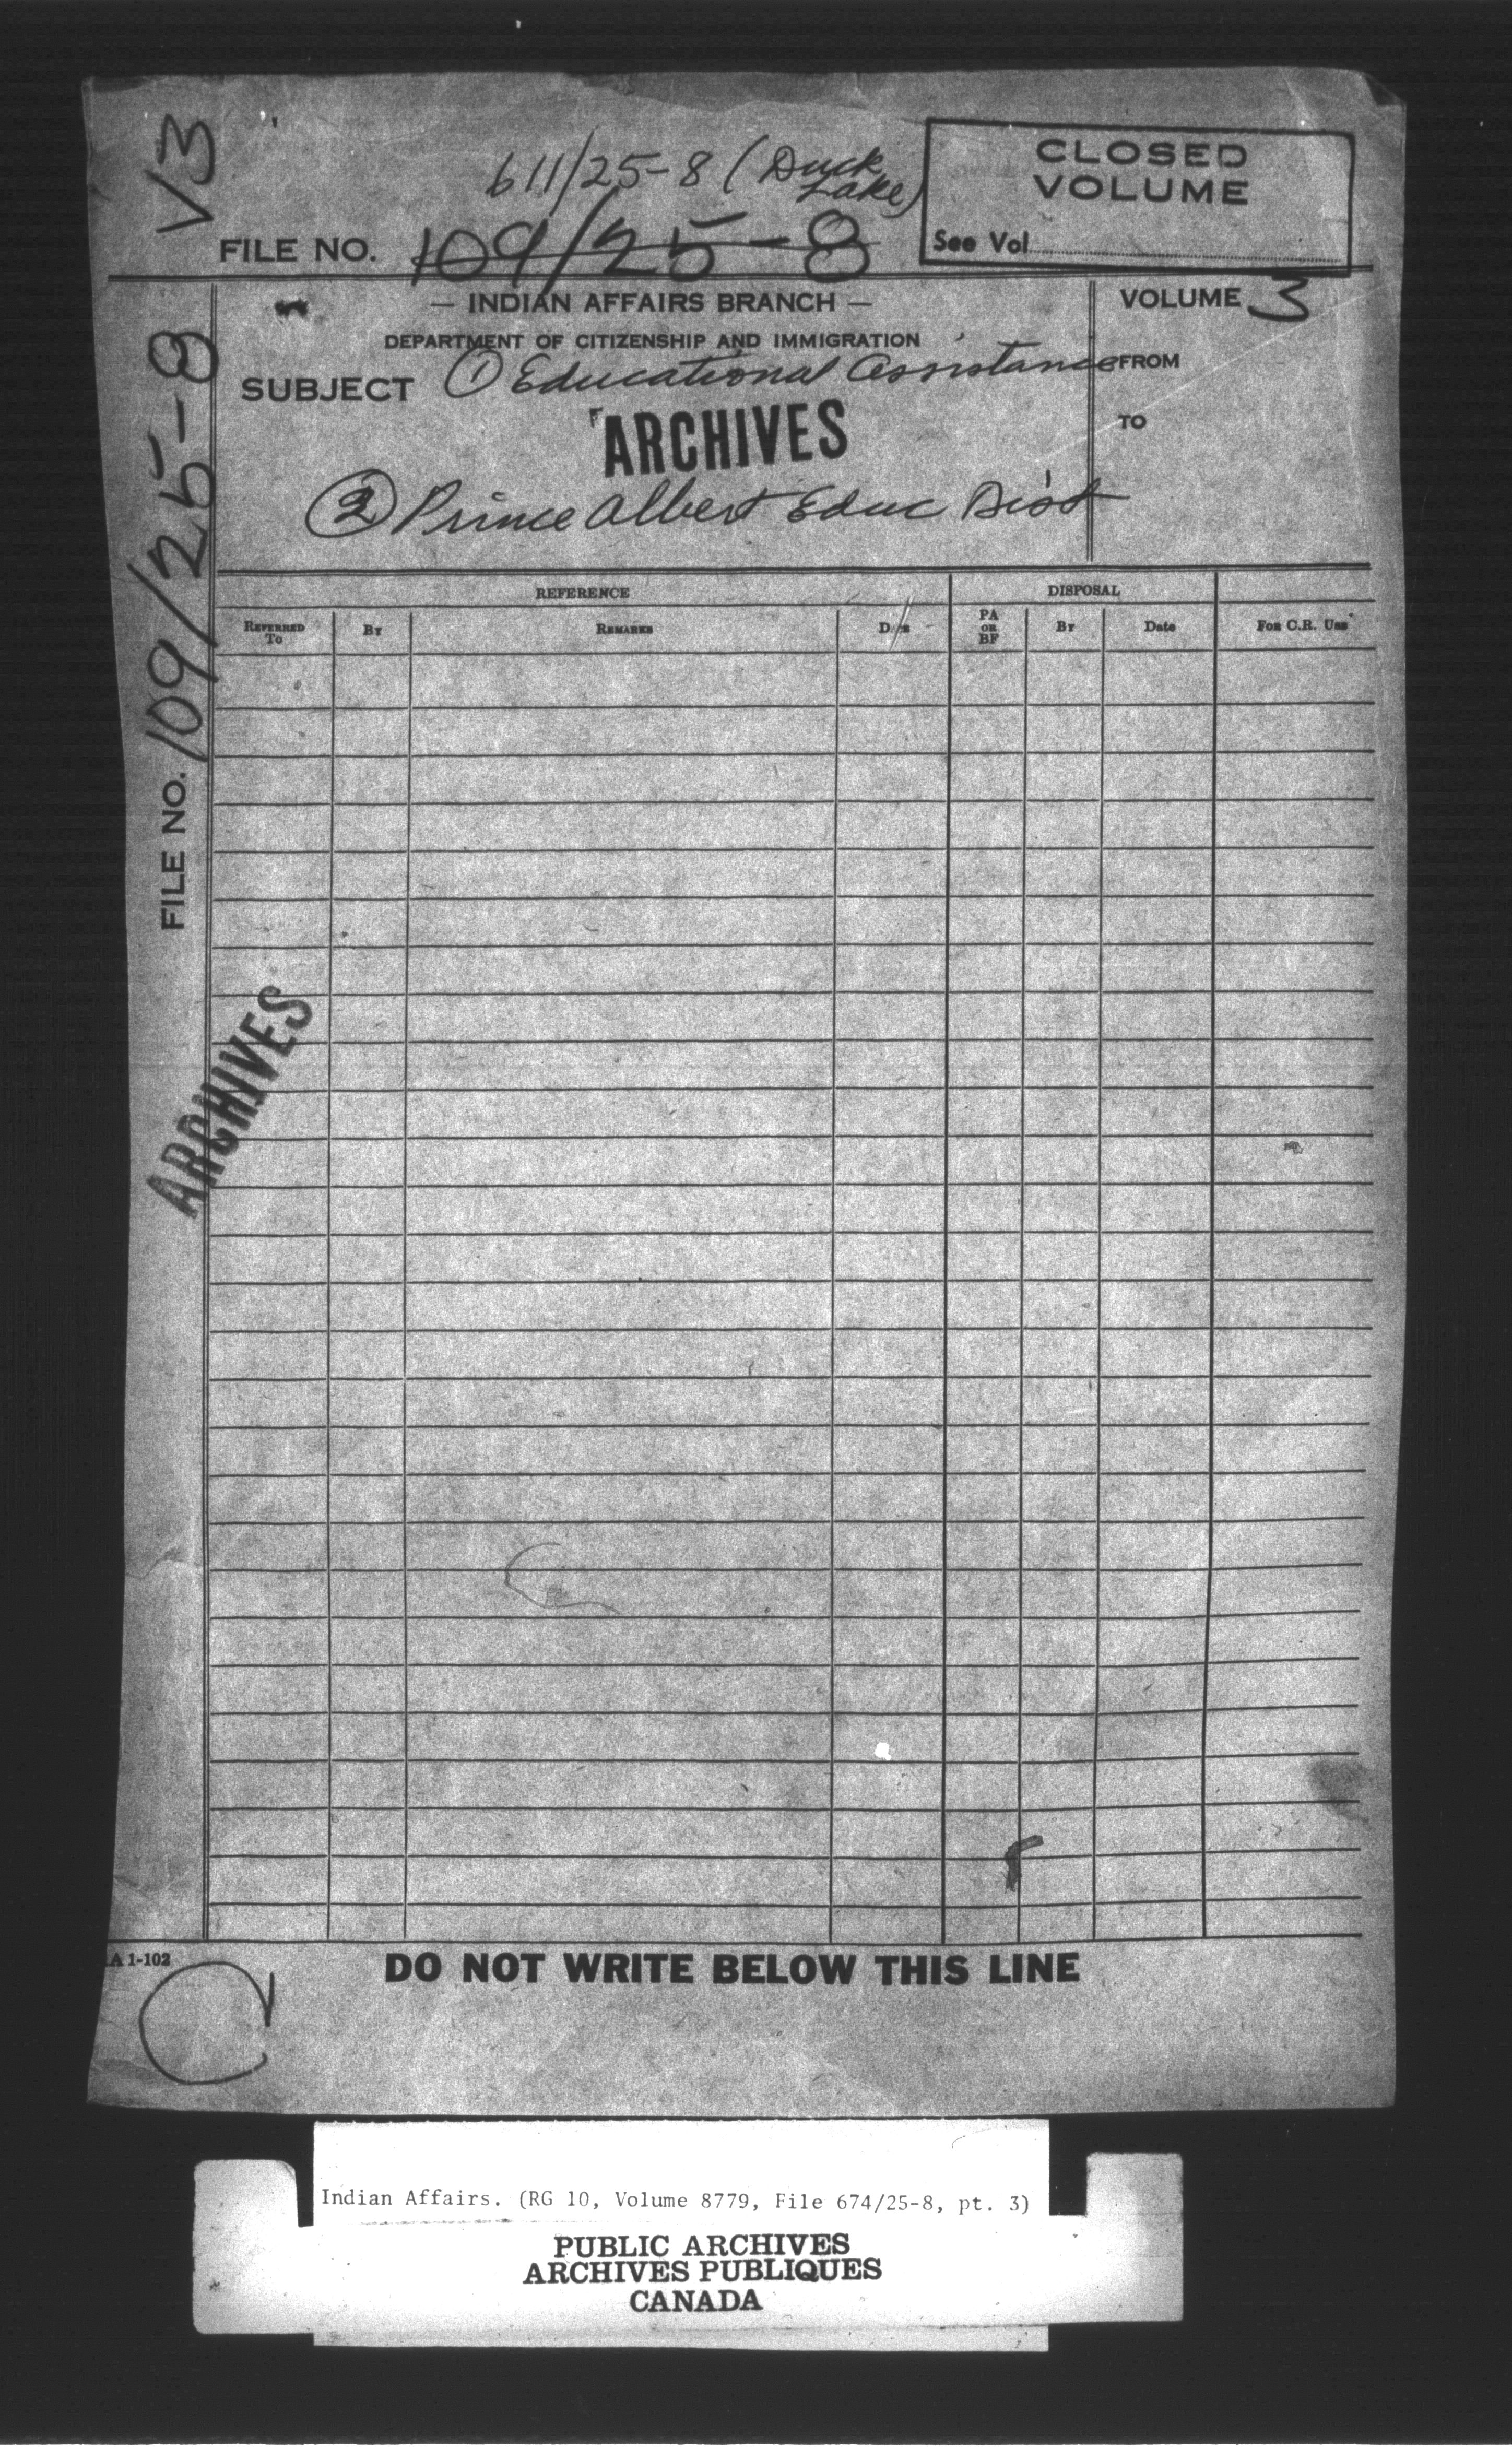 V3
611/25-8 (Duck
Lake)
CLOSED
VOLUME
See Vol
FILE NO. 109/25-8
— INDIAN AFFAIRS BRANCH —
VOLUME 3
DEPARTMENT OF CITIZENSHIP AND IMMIGRATION
SUBJECT ① Educational Assistance
FROM
TO
ARCHIVES
② Prince Albert Educ Dist
FILE NO. 109/25-8
REFERENCE
DISPOSAL
REFERRED TO
BY
REMARKS
DATE
PA OR BF
BY
DATE
FOR C.R. USE
ARCHIVES
A 1-102
DO NOT WRITE BELOW THIS LINE
Indian Affairs. (RG 10, Volume 8779, File 674/25-8, pt. 3)
PUBLIC ARCHIVES
ARCHIVES PUBLIQUES
CANADA